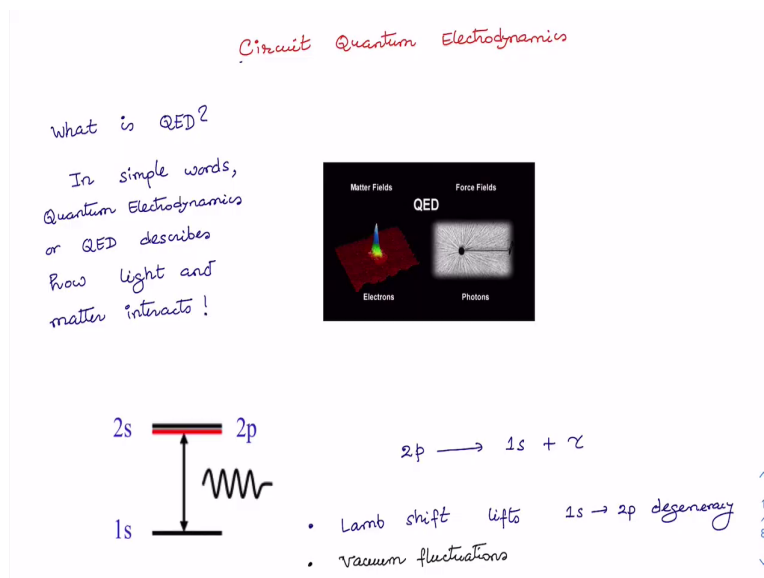 Circuit Quantum Electrodynamics
What is QED?
In simple words,
Quantum Electrodynamics
or QED describes
how light and
matter interacts!
Matter Fields Force Fields
QED
Electrons Photons
2s 2p
1s
2p → 1s + γ
• Lamb shift lifts 1s → 2p degeneracy
• Vacuum fluctuations